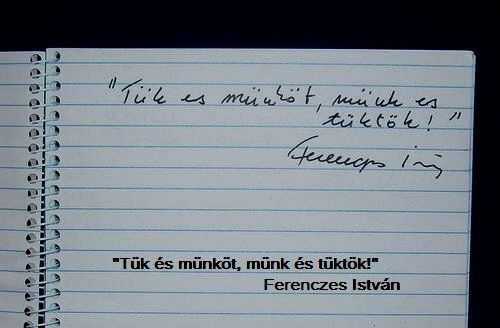 "Tük es münköt, münk es
tüktök!"
Ferenczes István
"Tük és münköt, münk és tüktök!"
Ferenczes István